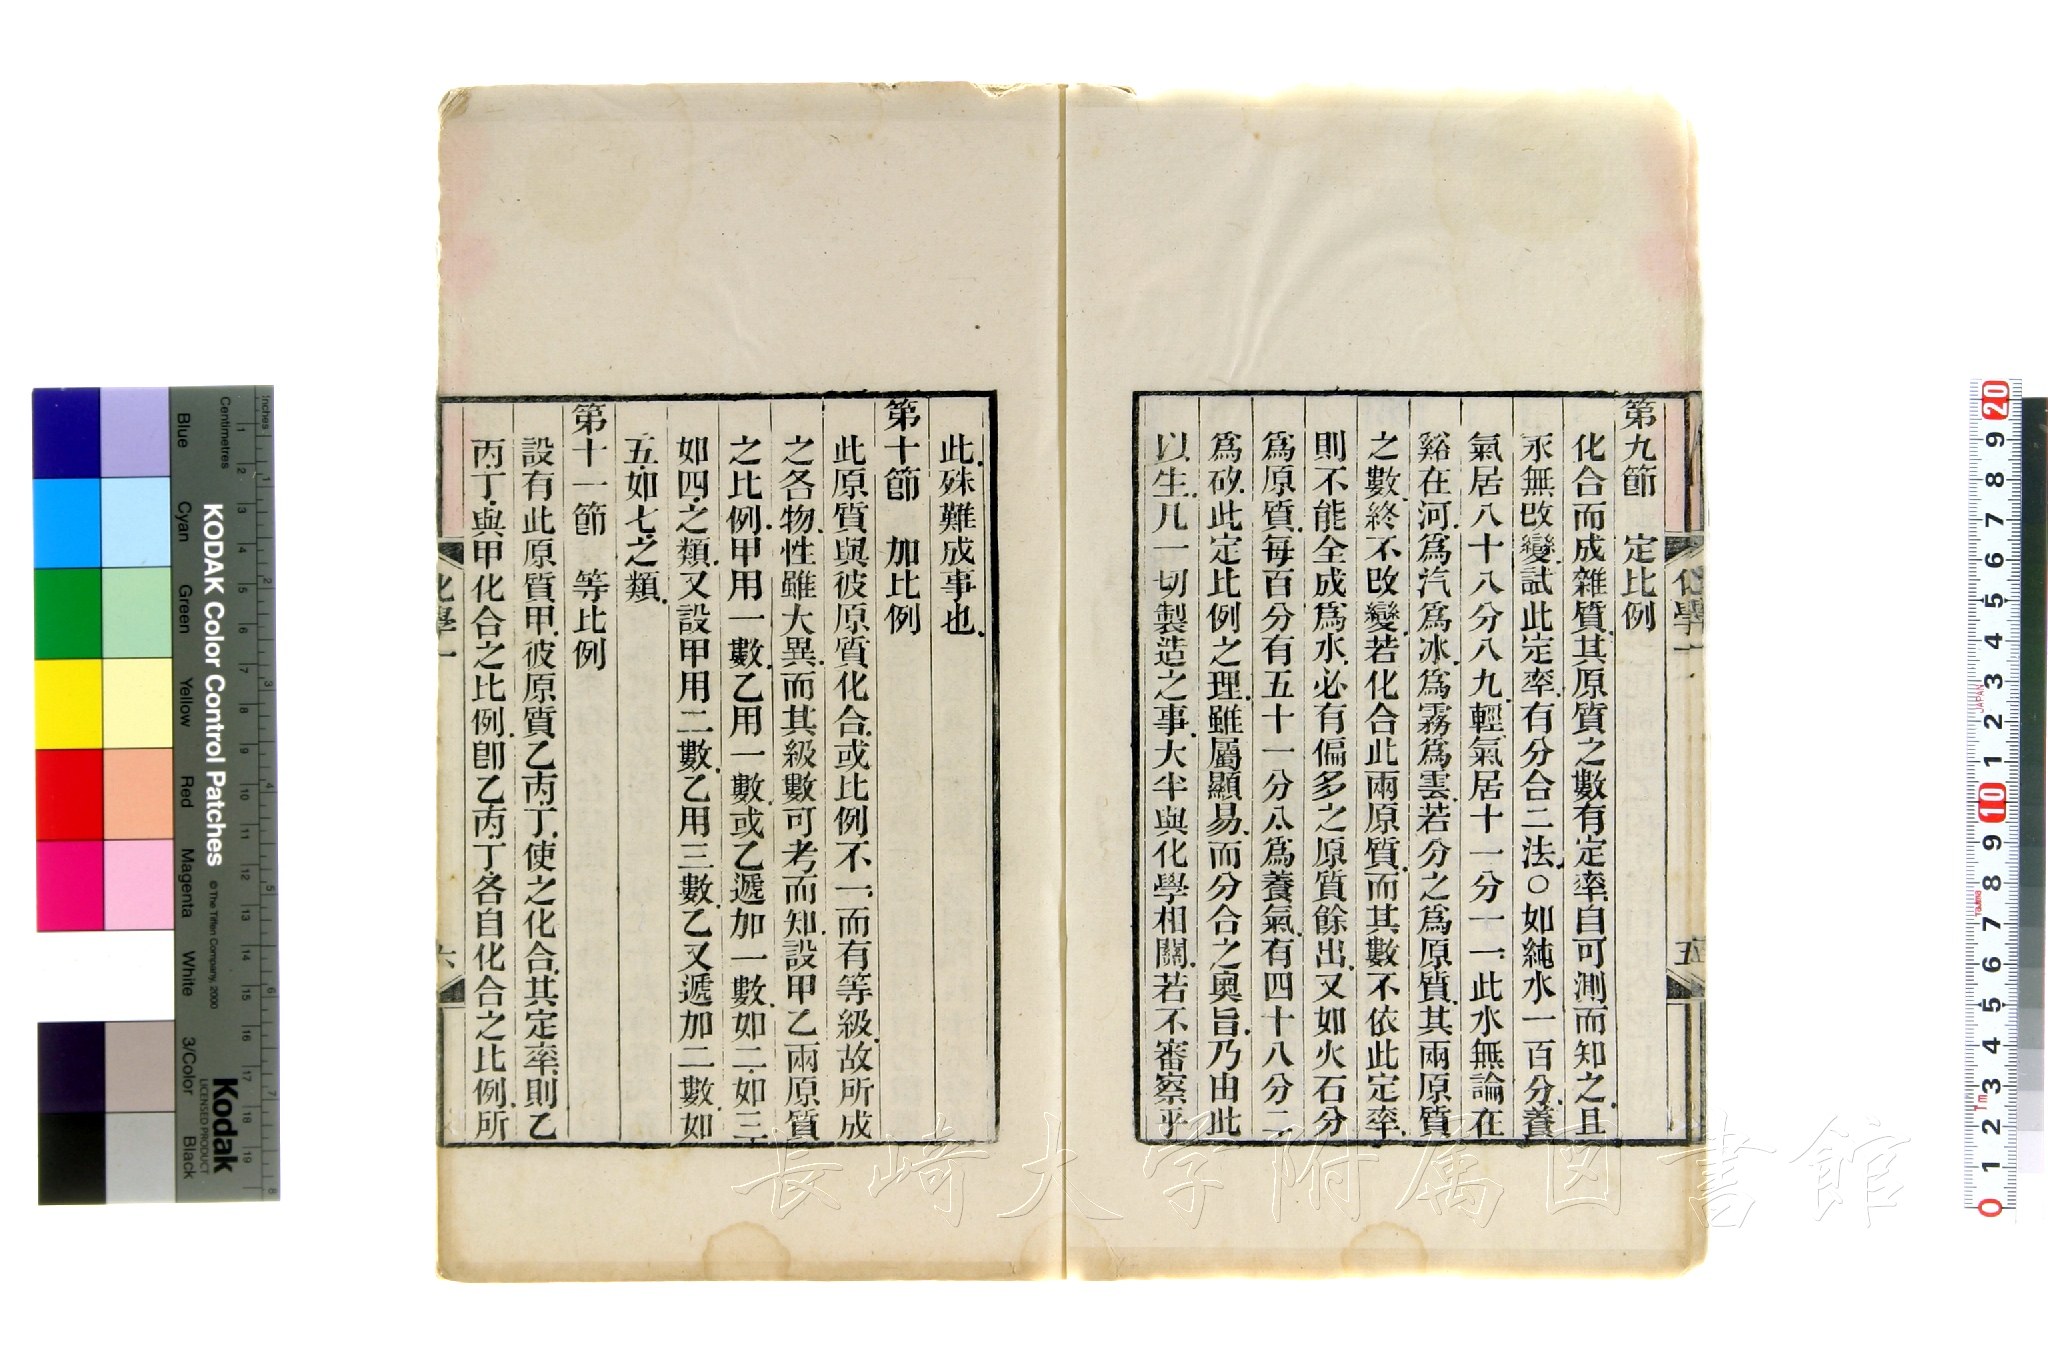 第九節　定比例
化合而成雜質.其原質之數有定率.自可測而知之.且
永無改變.試此定率.有分合二法.○如純水一百分.養
氣居八十八分八九.輕氣居十一分一一.此水無論在
谿在河.爲汽爲冰.爲霧爲雲.若分之爲原質.其兩原質
之數.終不改變.若化合此兩原質.而其數不依此定率.
則不能全成爲水.必有偏多之原質餘出.又如火石分
爲原質.每百分有五十一分八.爲養氣.有四十八分二.
爲矽.此定比例之理.雖屬顯易.而分合之奧旨.乃由此
以生.凡一切製造之事.大半與化學相關.若不審察乎
化學一
五
此.殊難成事也.
第十節　加比例
此原質與彼原質化合.或比例不一.而有等級.故所成
之各物.性雖大異.而其級數可考而知.設甲乙兩原質
之比例.甲用一數.乙用一數.或乙遞加一數.如二.如三.
如四.之類.又設甲用二數.乙用三數.乙又遞加二數.如
五.如七.之類.
第十一節　等比例
設有此原質甲.彼原質乙.丙.丁.使之化合.其定率.則乙
丙.丁.與甲化合之比例.卽乙.丙.丁.各自化合之比例.所
化學一
六
長崎大学附属図書館
KODAK Color Control Patches
© The Tiffen Company, 2000
Kodak
LICENSED PRODUCT
Inches
Centimetres
Blue
Cyan
Green
Yellow
Red
Magenta
White
3/Color
Black
JAPAN
Tajima